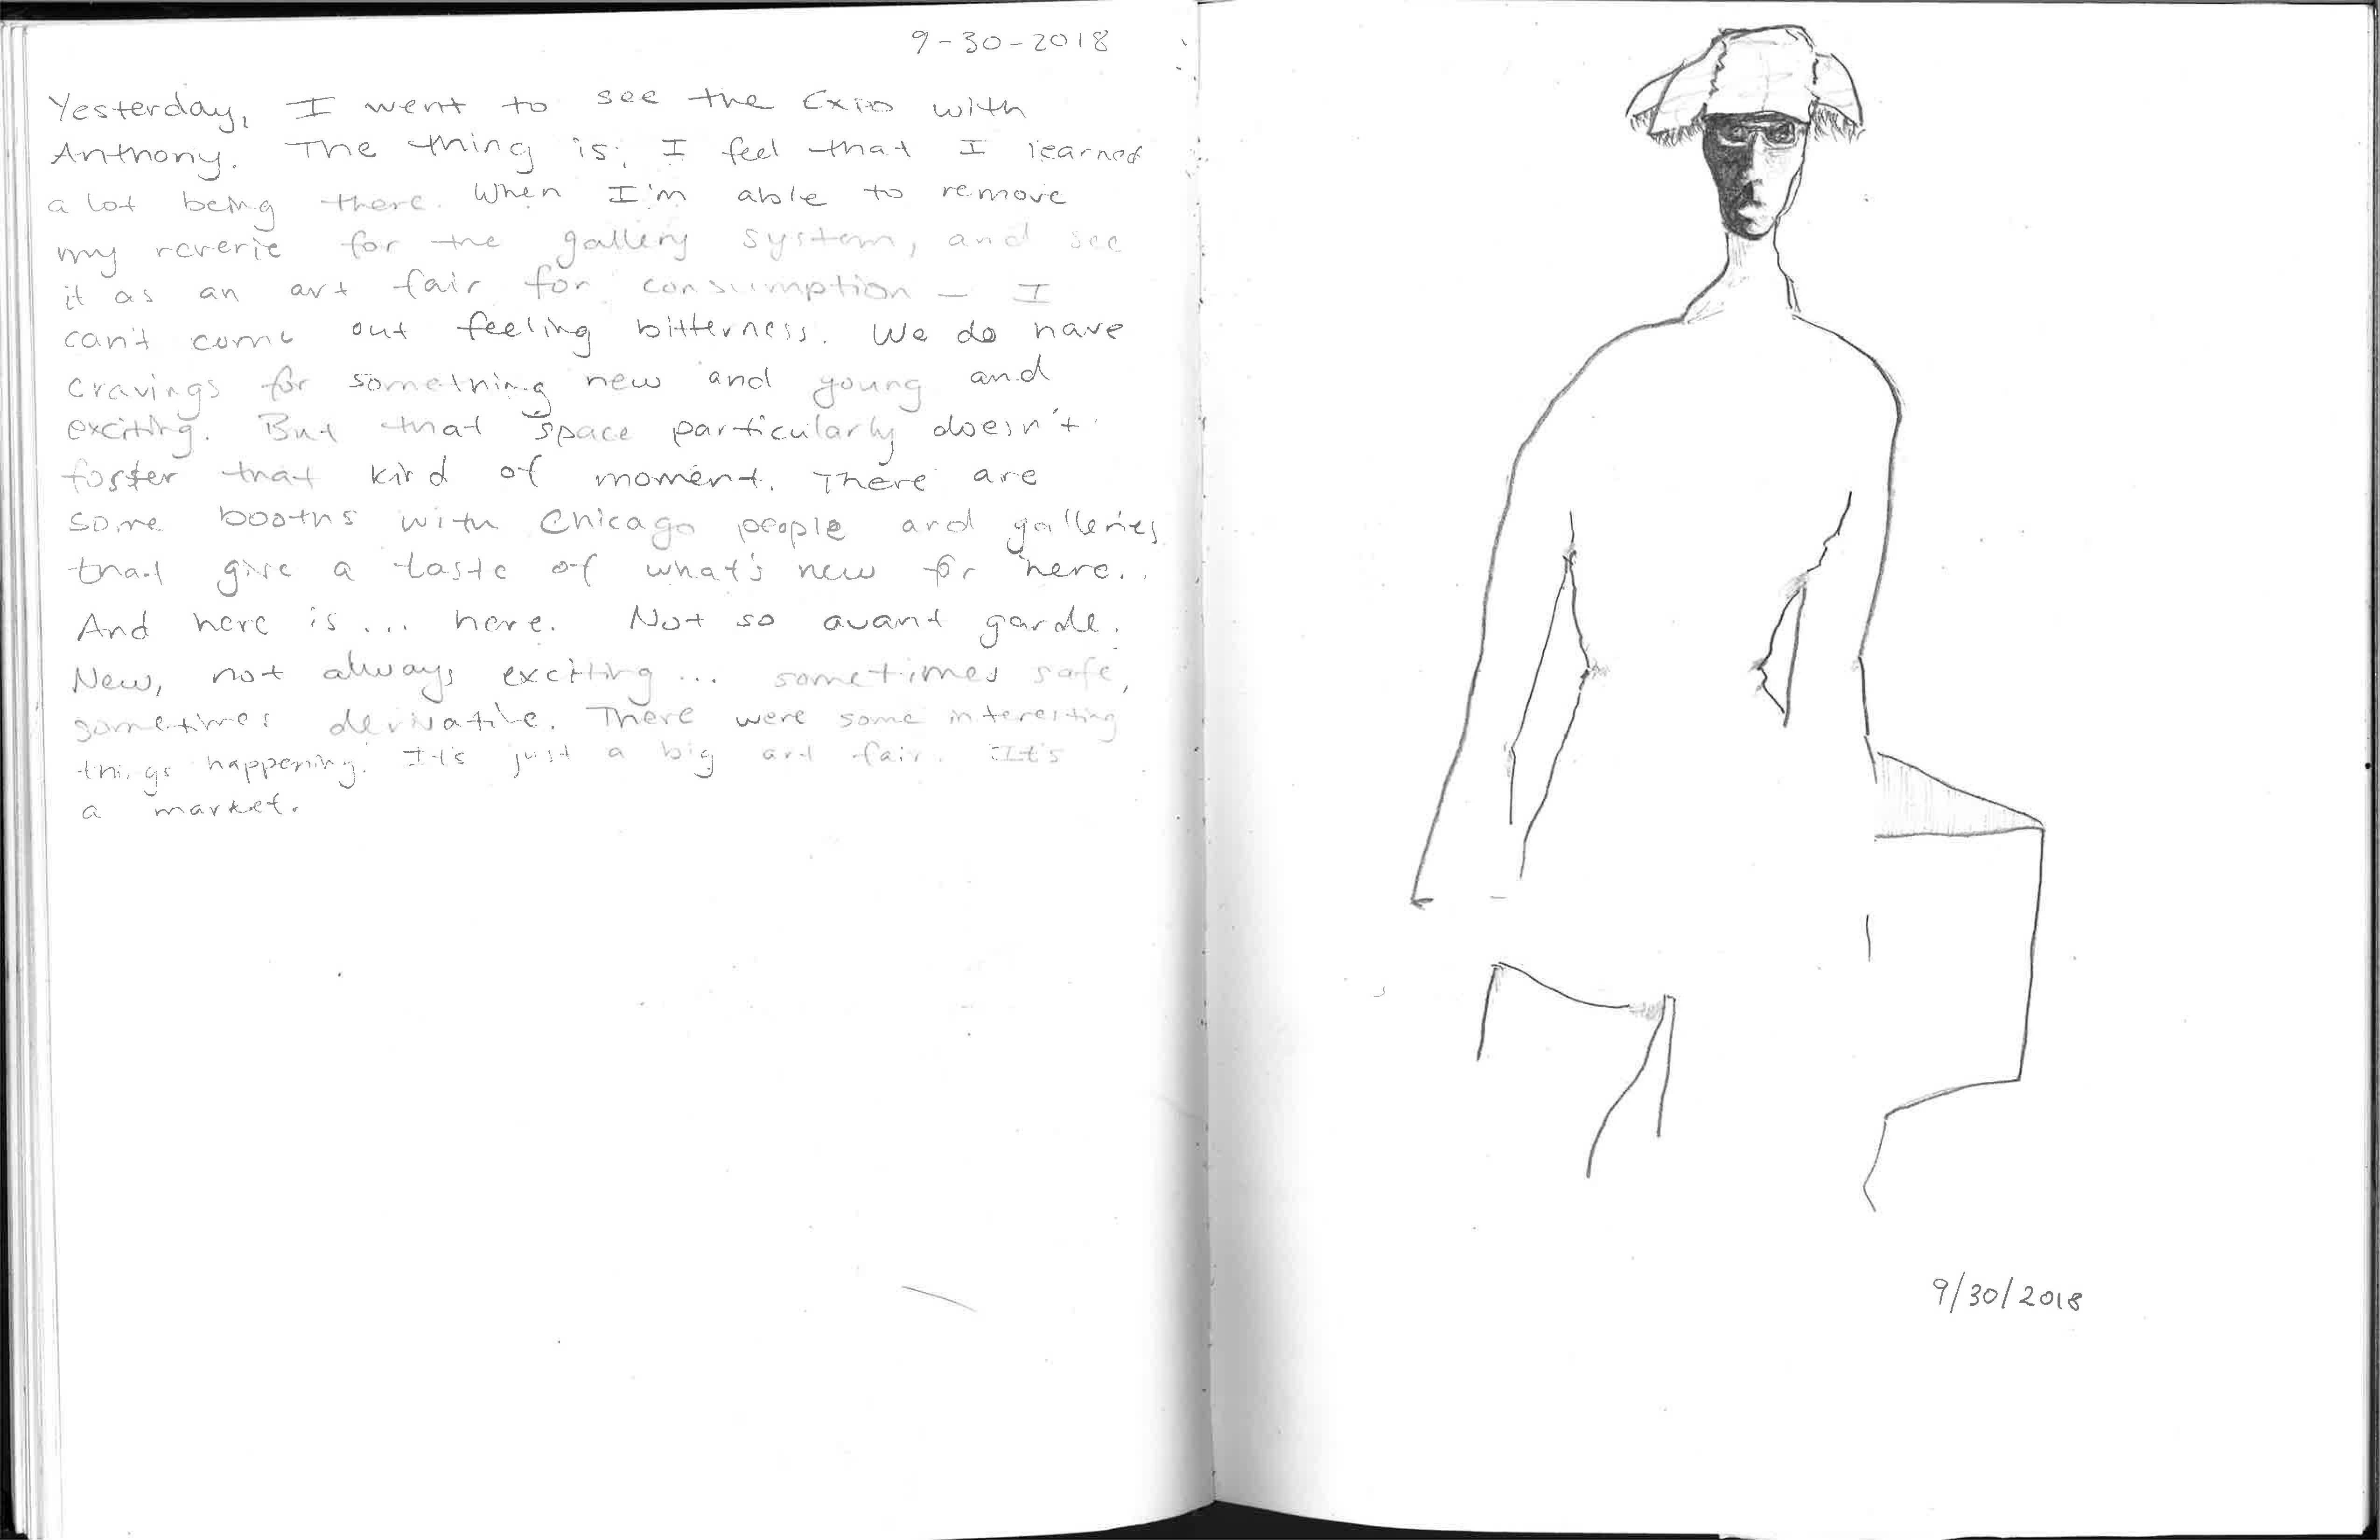 9-30-2018
Yesterday, I went to see the Expo with
Anthony. The thing is, I feel that I learned
a lot being there. When I'm able to remove
my reverie for the gallery system, and see
it as an art fair for consumption — I
can't come out feeling bitterness. We do have
cravings for something new and young and
exciting. But that space particularly doesn't
foster that kind of moment. There are
some booths with Chicago people and galleries
that give a taste of what's new for here..
And here is ... here. Not so avant garde.
New, not always exciting ... sometimes safe,
sometimes derivative. There were some interesting
things happening. It's just a big art fair. It's
a market.
9/30/2018